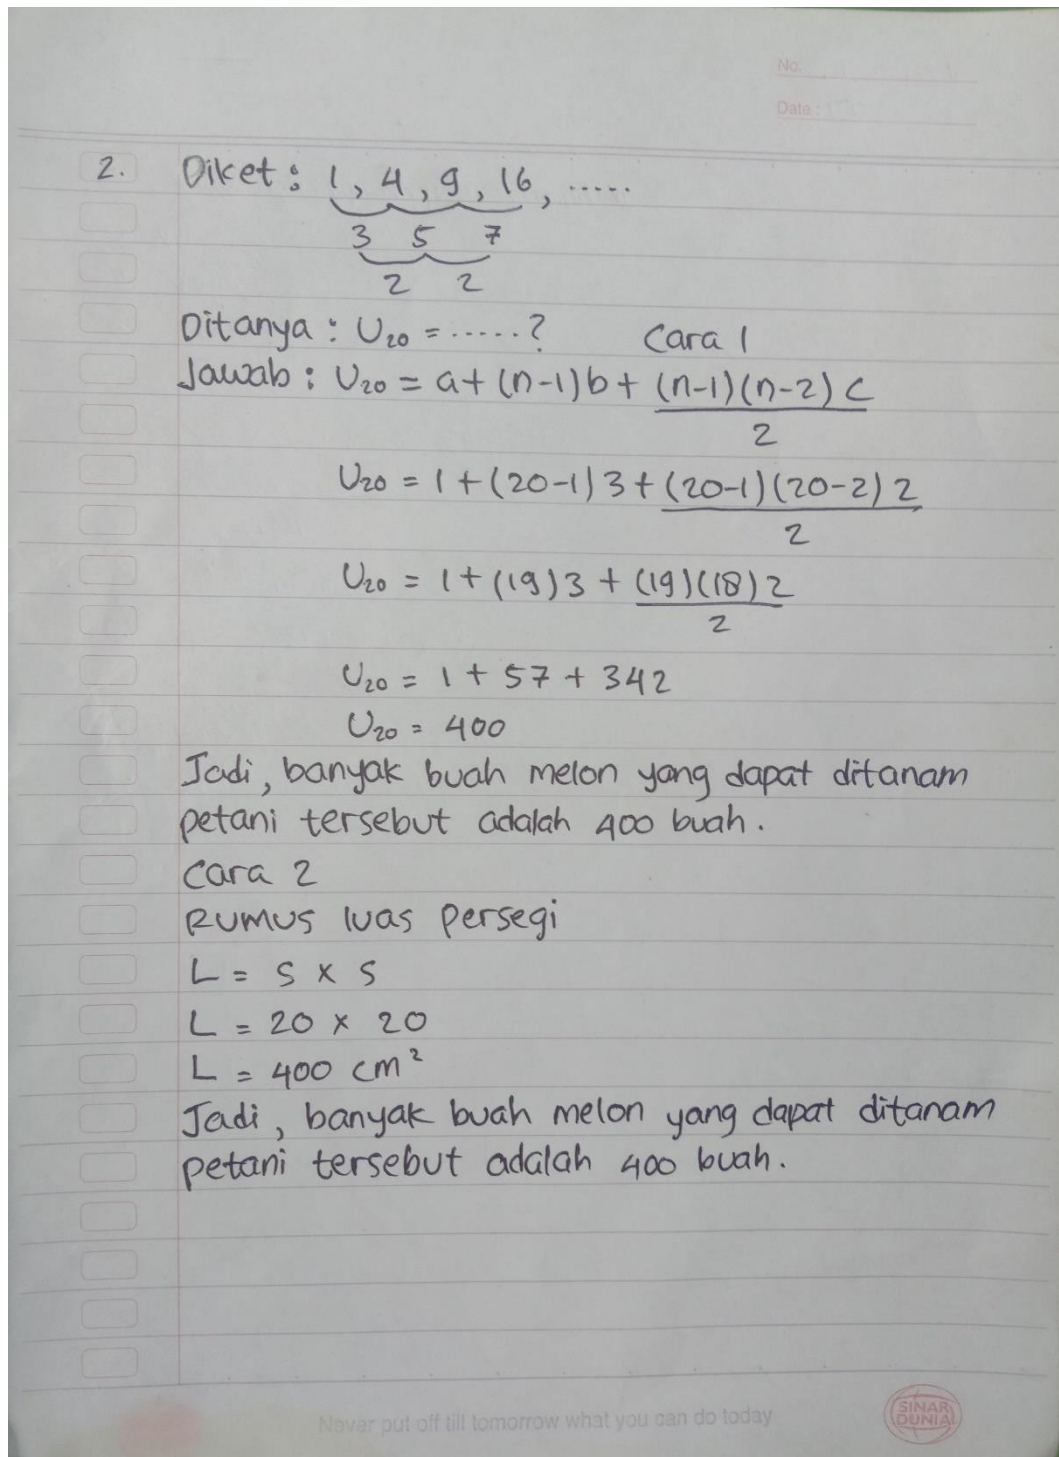 No.
Date :
2. Diket : 1, 4, 9, 16, .....
3 5 7
2 2
Ditanya : U20 = .....? Cara 1
Jawab : U20 = a + (n-1)b + (n-1)(n-2)c
2
U20 = 1 + (20-1)3 + (20-1)(20-2)2
2
U20 = 1 + (19)3 + (19)(18)2
2
U20 = 1 + 57 + 342
U20 = 400
Jadi, banyak buah melon yang dapat ditanam
petani tersebut adalah 400 buah.
Cara 2
Rumus luas persegi
L = s x s
L = 20 x 20
L = 400 cm²
Jadi, banyak buah melon yang dapat ditanam
petani tersebut adalah 400 buah.
Never put off till tomorrow what you can do today
SINAR
DUNIA